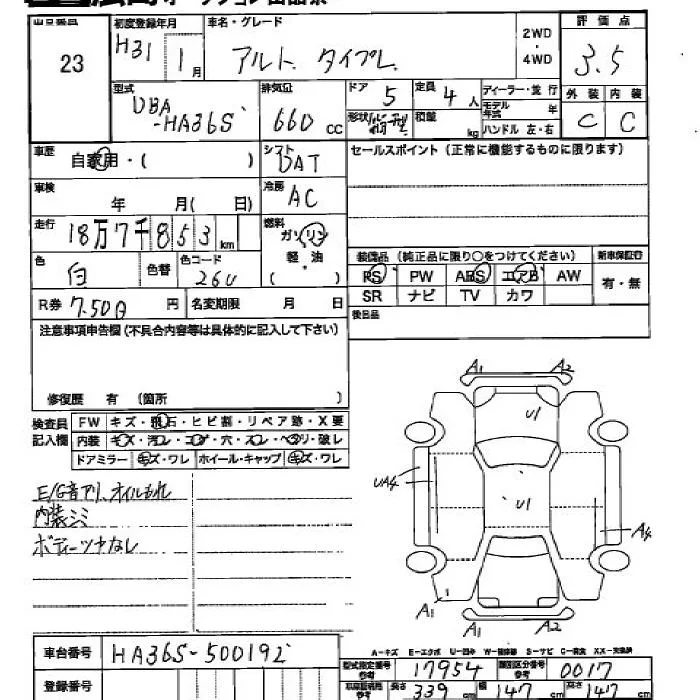 出品番号 初度登録年月 車名・グレード 2WD・4WD 評価点
23 H31 1月 アルト タイプL 3.5
型式 DBA-HA36S 排気量 660 cc ドア 5 定員 4人 ディーラー・並行 外装 内装
形状 積載 kg モデル年式 年 ハンドル 左・右 C C
車歴 自家用・( ) シフト DAT セールスポイント(正常に機能するものに限ります)
車検 年 月( 日) 冷房 AC
走行 18万7千853km 燃料 ガソリン 軽・油 ( )
色 白 色替 色コード 26U
装備品(純正品に限り○をつけてください) 新車保証書
PS PW ABS エアB AW 有・無
SR ナビ TV カワ
R券 7.500円 名変期限 月 日 後日品
注意事項申告欄(不具合内容等は具体的に記入して下さい)
修復歴 有 (箇所 )
検査員記入欄 FW キズ・飛石・ヒビ割・リペア跡・X要
内装 キズ・汚レ・コゲ・穴・スレ・ヘタリ・破レ
ドアミラー キズ・ワレ ホイール・キャップ キズ・ワレ
E/G音アリ、オイルもれ
内装シミ
ボディーツヤなし
A1 A2
U1
UA4 U1 A4
A1 A1 A2
A-キズ E-エクボ U-凹み S-サビ
車台番号 HA36S-500192
型式指定番号 参考 17954 類別区分番号 参考 0017
登録番号 長さ 339 cm 幅 147 cm 高さ 147 cm